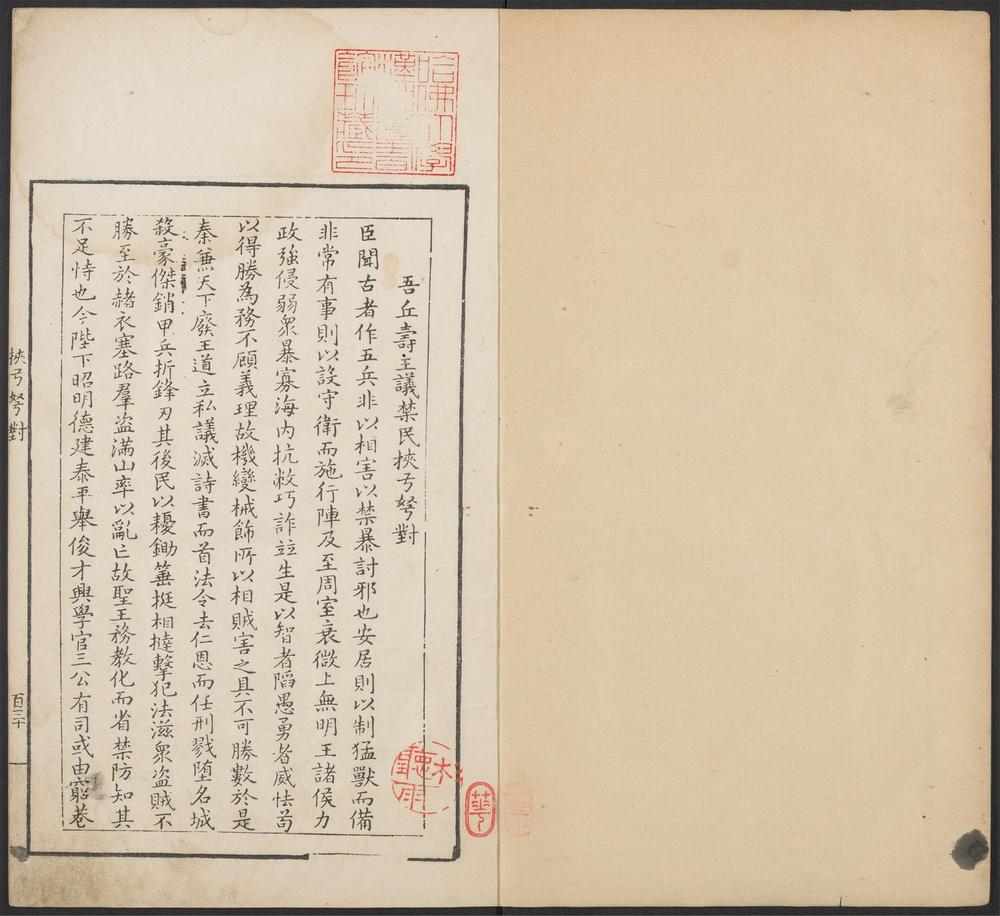 吾丘壽王議禁民挾弓弩對
臣聞古者作五兵非以相害以禁暴討邪也安居則以制猛獸而備
非常有事則以設守衛而施行陣及至周室衰微上無明王諸侯力
政強侵弱眾暴寡海內抗敝巧詐竝生是以智者陷愚勇者威怯苟
以得勝為務不顧義理故機變械飾所以相賊害之具不可勝數於是
秦兼天下廢王道立私議滅詩書而首法令去仁恩而任刑戮墮名城
殺豪傑銷甲兵折鋒刃其後民以耰鋤箠梃相撻擊犯法滋眾盜賊不
勝至於赭衣塞路羣盜滿山率以亂亡故聖王務教化而省禁防知其
不足恃也今陛下昭明德建泰平舉俊才興學官三公有司或由窮巷
挾弓弩對
百三十
哈佛大學漢和圖書館珍藏印
華